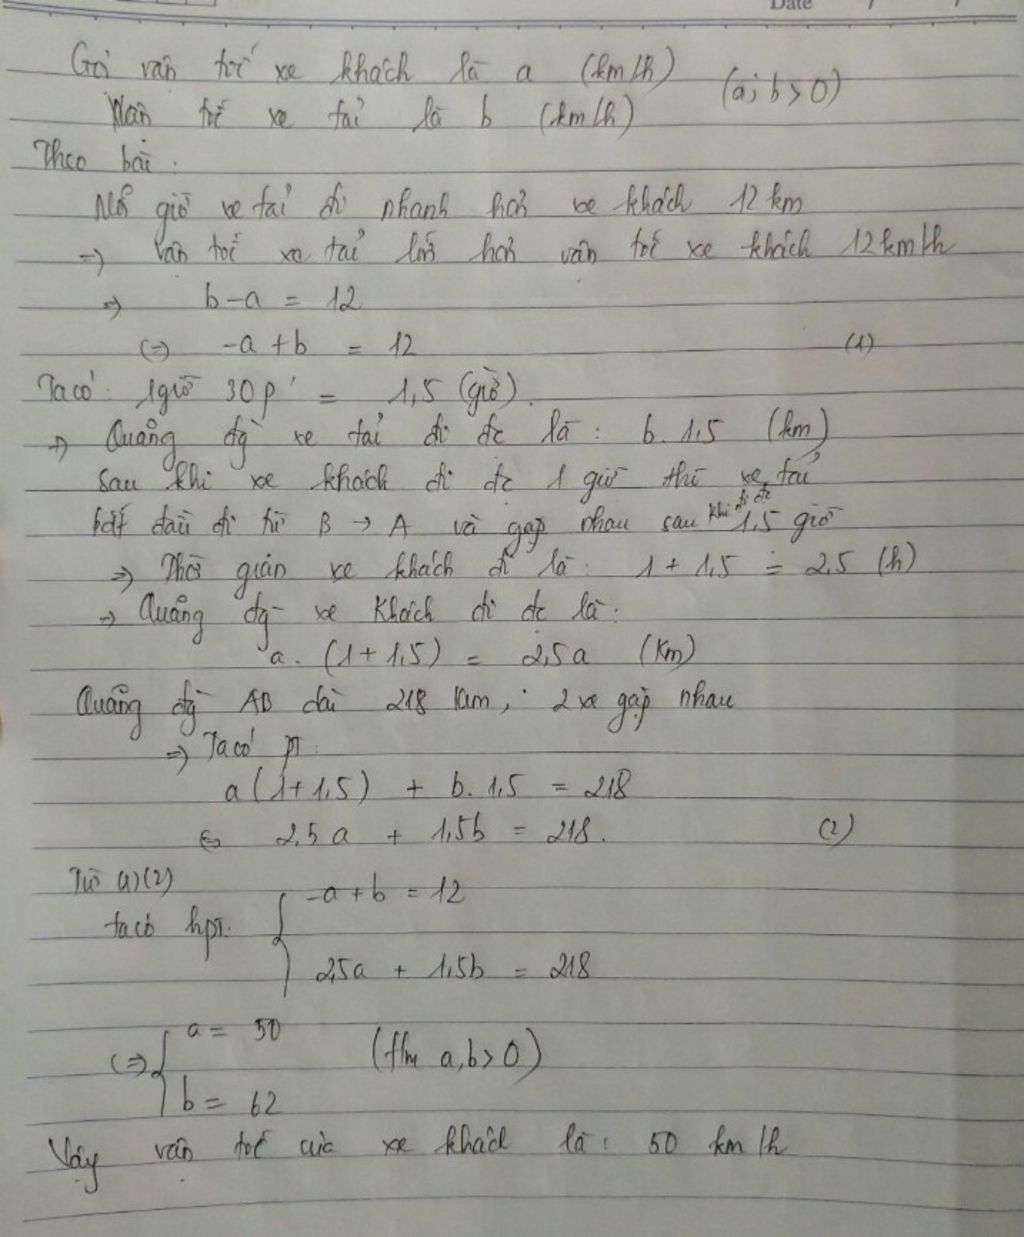 Date / /
Gọi vận tốc xe khách là a (km/h) (a; b > 0)
Vận tốc xe tải là b (km/h)
Theo bài :
Mỗi giờ xe tải đi nhanh hơn xe khách 12 km
=> Vận tốc xe tải lớn hơn vận tốc xe khách 12 km/h
=> b - a = 12
<=> -a + b = 12 (1)
Ta có : 1 giờ 30 p' = 1,5 (giờ).
=> Quãng đg xe tải đi đc là : b. 1,5 (km)
Sau khi xe khách đi đc 1 giờ thì xe tải
bắt đầu đi từ B → A và gặp nhau sau khi đi đc 1,5 giờ
=> Thời gian xe khách đi là : 1 + 1,5 = 2,5 (h)
=> Quãng đg xe khách đi đc là :
a. (1 + 1,5) = 2,5a (Km)
Quãng đg AB dài 218 km, 2 xe gặp nhau
=> Ta có pt :
a (1 + 1,5) + b. 1,5 = 218
<=> 2,5a + 1,5b = 218. (2)
Từ (1) (2)
ta có hpt. { -a + b = 12
2,5a + 1,5b = 218
<=> { a = 50 (tm a, b > 0)
b = 62
Vậy vận tốc của xe khách là : 50 km/h